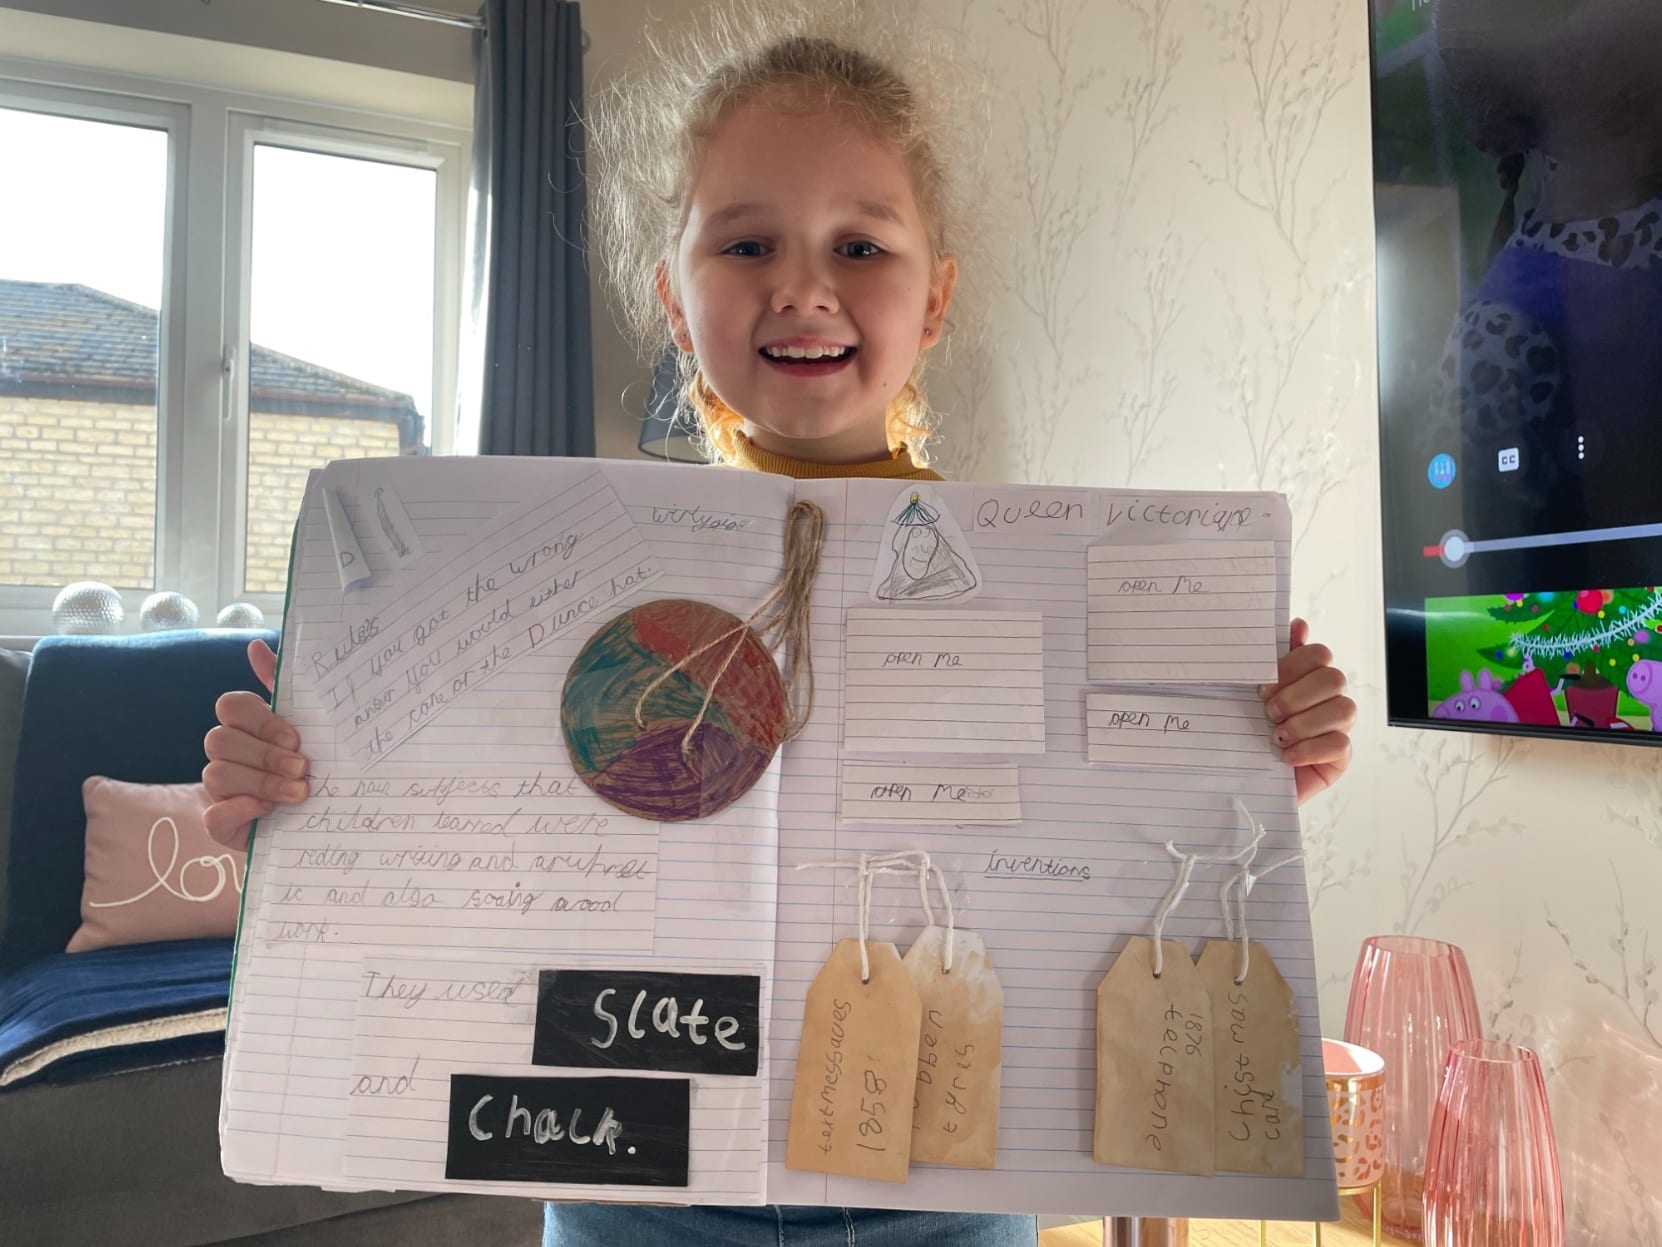 D
Rules
If you got the wrong
answer you would either
the cane or the Dunce hat.
The subjects that
children learned were
reding and
ic and also wood
work.
They used
Slate
and
Chalk.
Queen
open me
open me
open me
open me
inventions
textmessaves
1858.
tyris
1876
telephone
Christmas
card
lov
CC